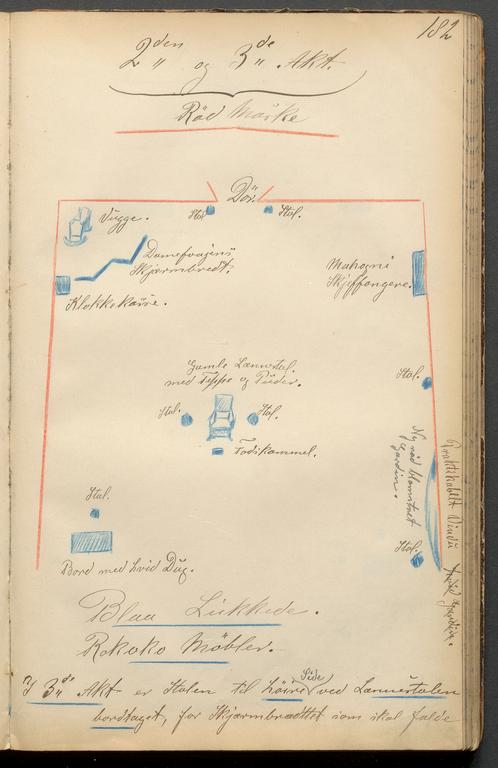 182
2den og 3de Akt.
Rød Maske
Dör.
Vugge.
Stol
Stol.
Skjærmbrædt.
Mahogni
Klokkekasse.
Gamle Lænnestol.
med Teppe og Puder.
Stol.
Stol.
Stol.
Fodskammel.
Ny rød blomstret
Gardin.
Praktikabelt Vindu
Gardin.
Stol.
Stol.
Bord med hvid Dug.
Blaa Lukkede.
Rokoko Möbler.
I 3de Akt er Stolen til höire Side ved Lænnestolen
bordtaget, for Skjærmbrættet som skal falde